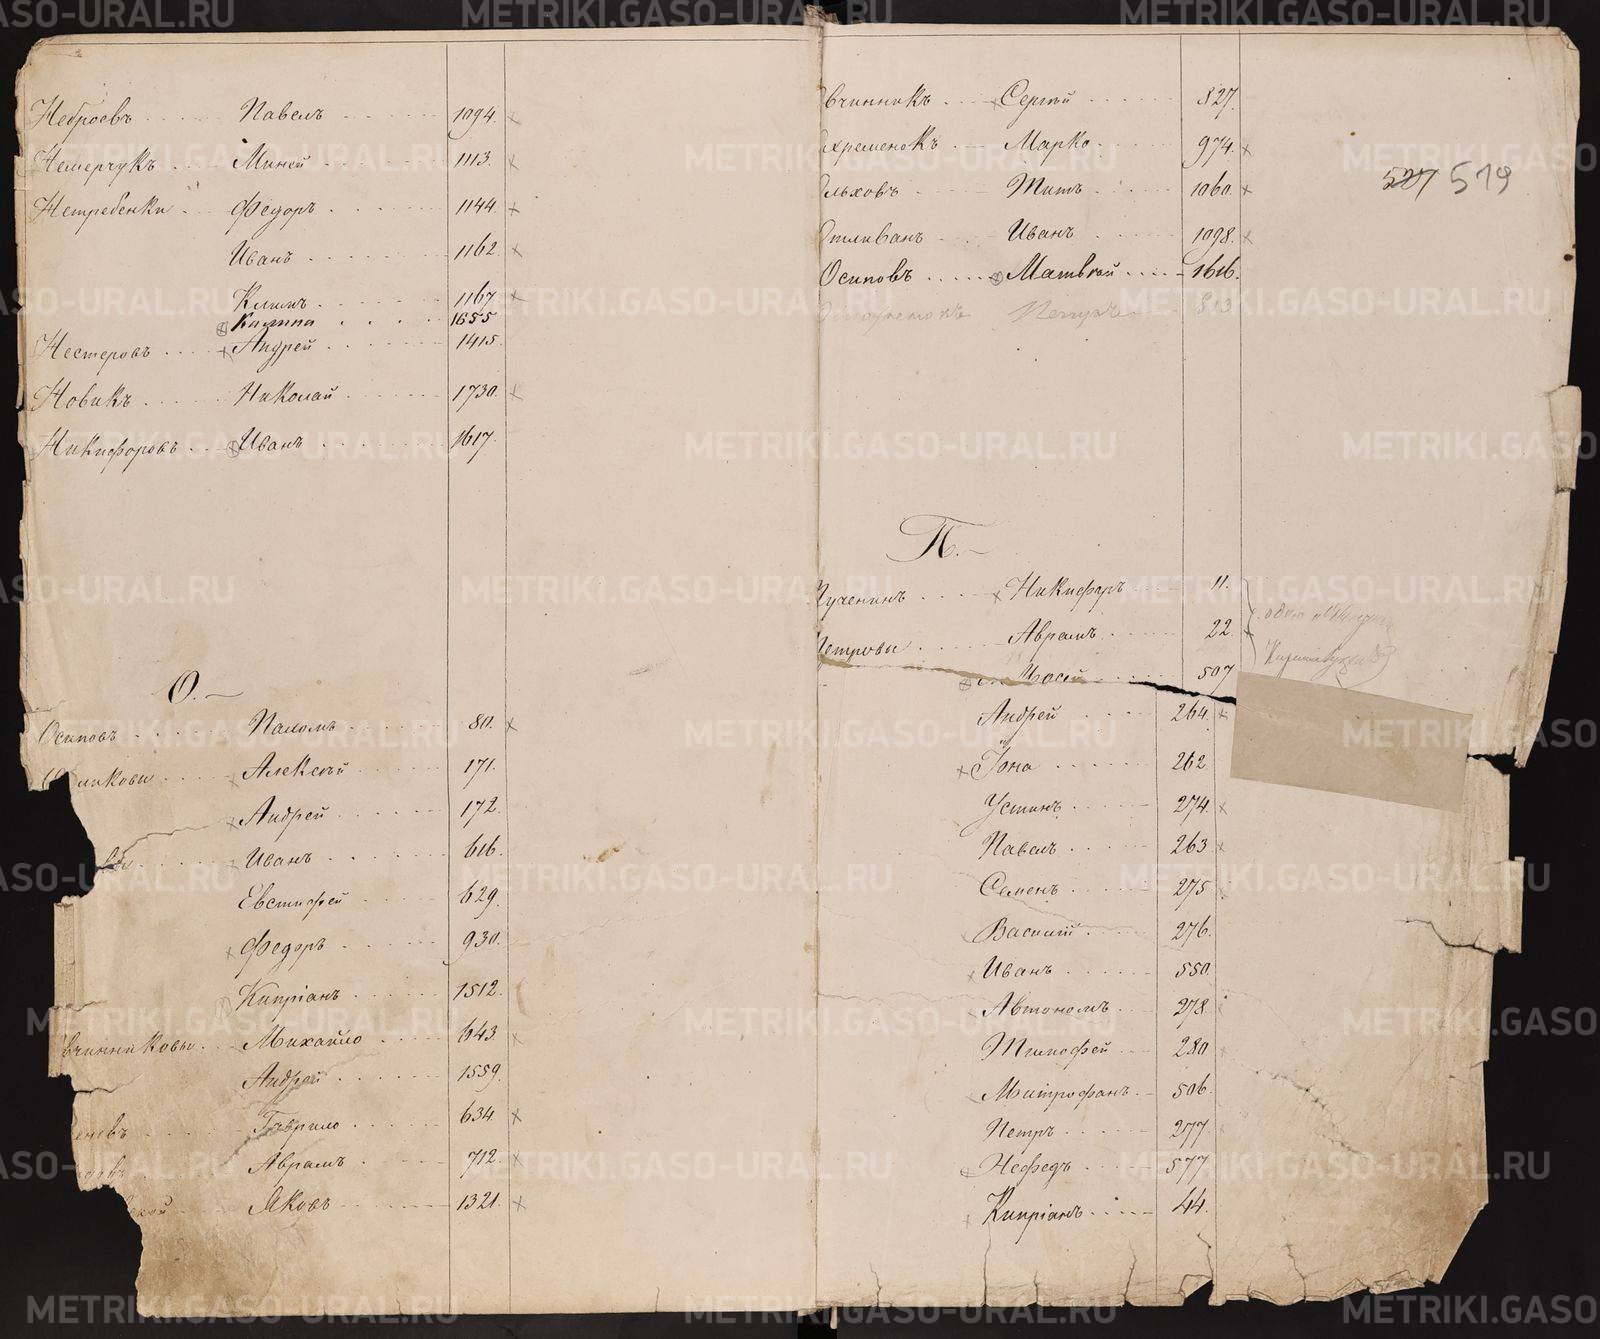 Неброевъ Павелъ 1094. ×
Немерчукъ Миней 1113. ×
Нетребенки Федоръ 1144. ×
Иванъ 1162 ×
Климъ 1167 ×
Калина 1655
Нестеровъ × Андрей 1415.
Новикъ Николай 1730. ×
Никифоровъ Иванъ 1617.
О.
Осиповъ Пахомъ 80. ×
× Алексѣй 171.
× Андрей 172.
Иванъ 616.
Евстифей 629.
× Федоръ 930.
Кипріанъ 1512.
вчинниковы Михайло 643. ×
Андрей 1559.
Гаврило 634. ×
Аврамъ 712. ×
Яковъ 1321. ×
527 519
вчинникъ × Сергѣй 827.
хременокъ Марко 974. ×
льховъ Титъ 1060. ×
тливанъ Иванъ 1098. ×
Осиповъ Матвѣй 1616.
Петръ 813
П.
× Никифоръ 11.
Петровы Аврамъ 22. ×
Мосѣй 507
Андрей 264. ×
× Іона 262
Устинъ 274. ×
Павелъ 263 ×
Семенъ 275 ×
Василій 276.
× Иванъ 550.
Автономъ 278.
Тимофей 280
Митрофанъ 506.
Петръ 277
× Нефедъ 577
× Кипріанъ 44.
METRIKI.GASO-URAL.RU